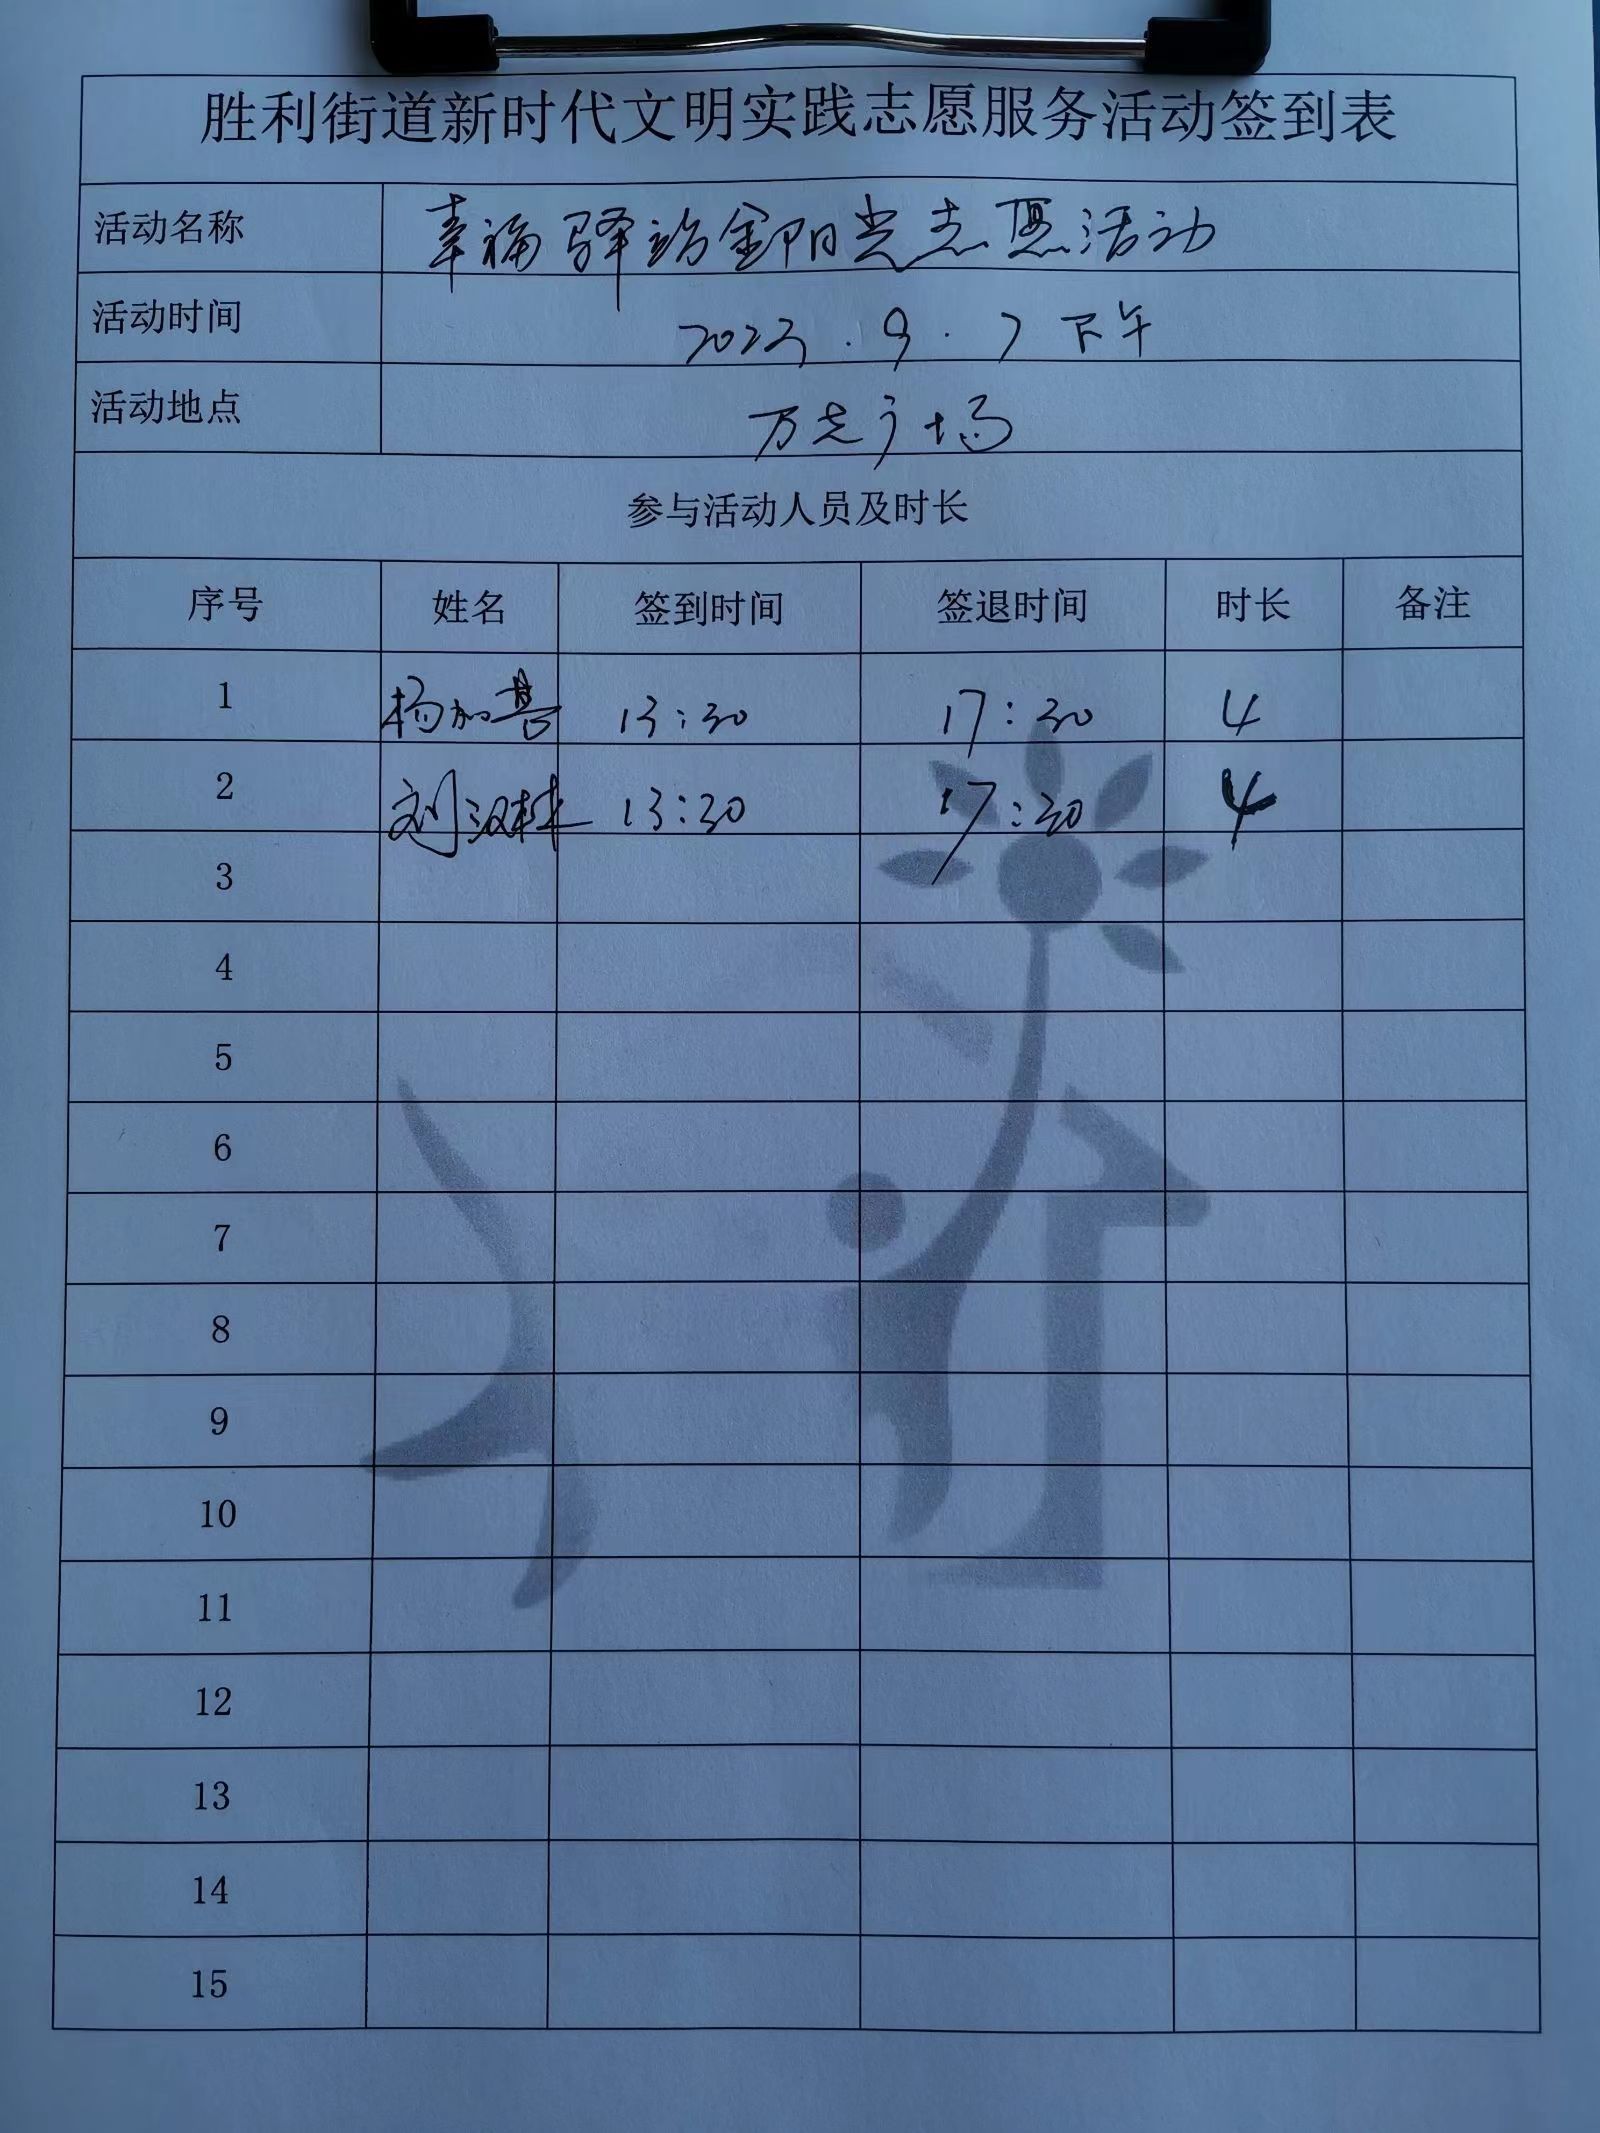 胜利街道新时代文明实践志愿服务活动签到表
活动名称 幸福驿站金阳光志愿活动
活动时间 2023.9.7下午
活动地点 万达广场
参与活动人员及时长
序号 姓名 签到时间 签退时间 时长 备注
1 杨加善 13:30 17:30 4
2 刘汉林 13:30 17:30 4
3
4
5
6
7
8
9
10
11
12
13
14
15